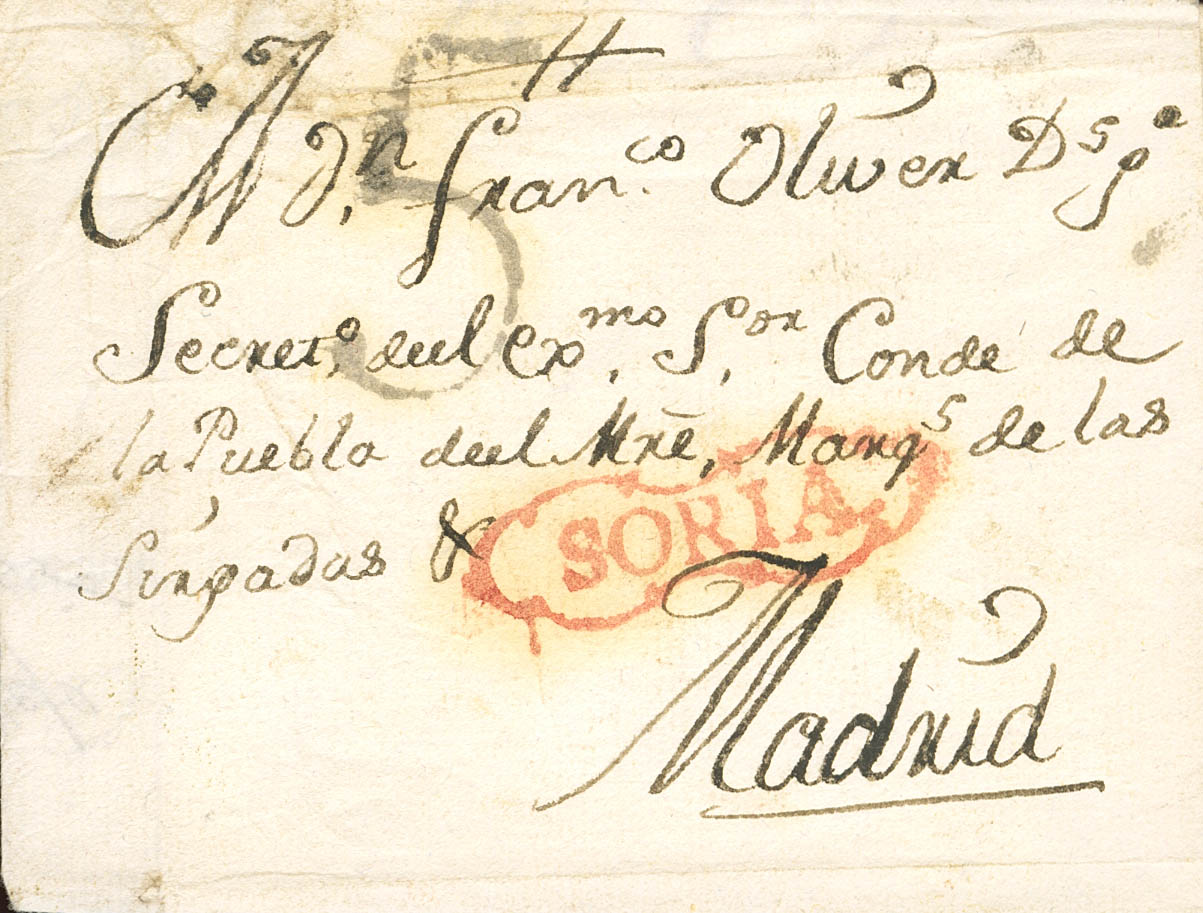 A D.n Fran.co Oliver Ds g.e
Secret.o del Exmo. S.or Conde de
la Puebla del Mrē, Marqs de las
Torres
SORIA
Madrid